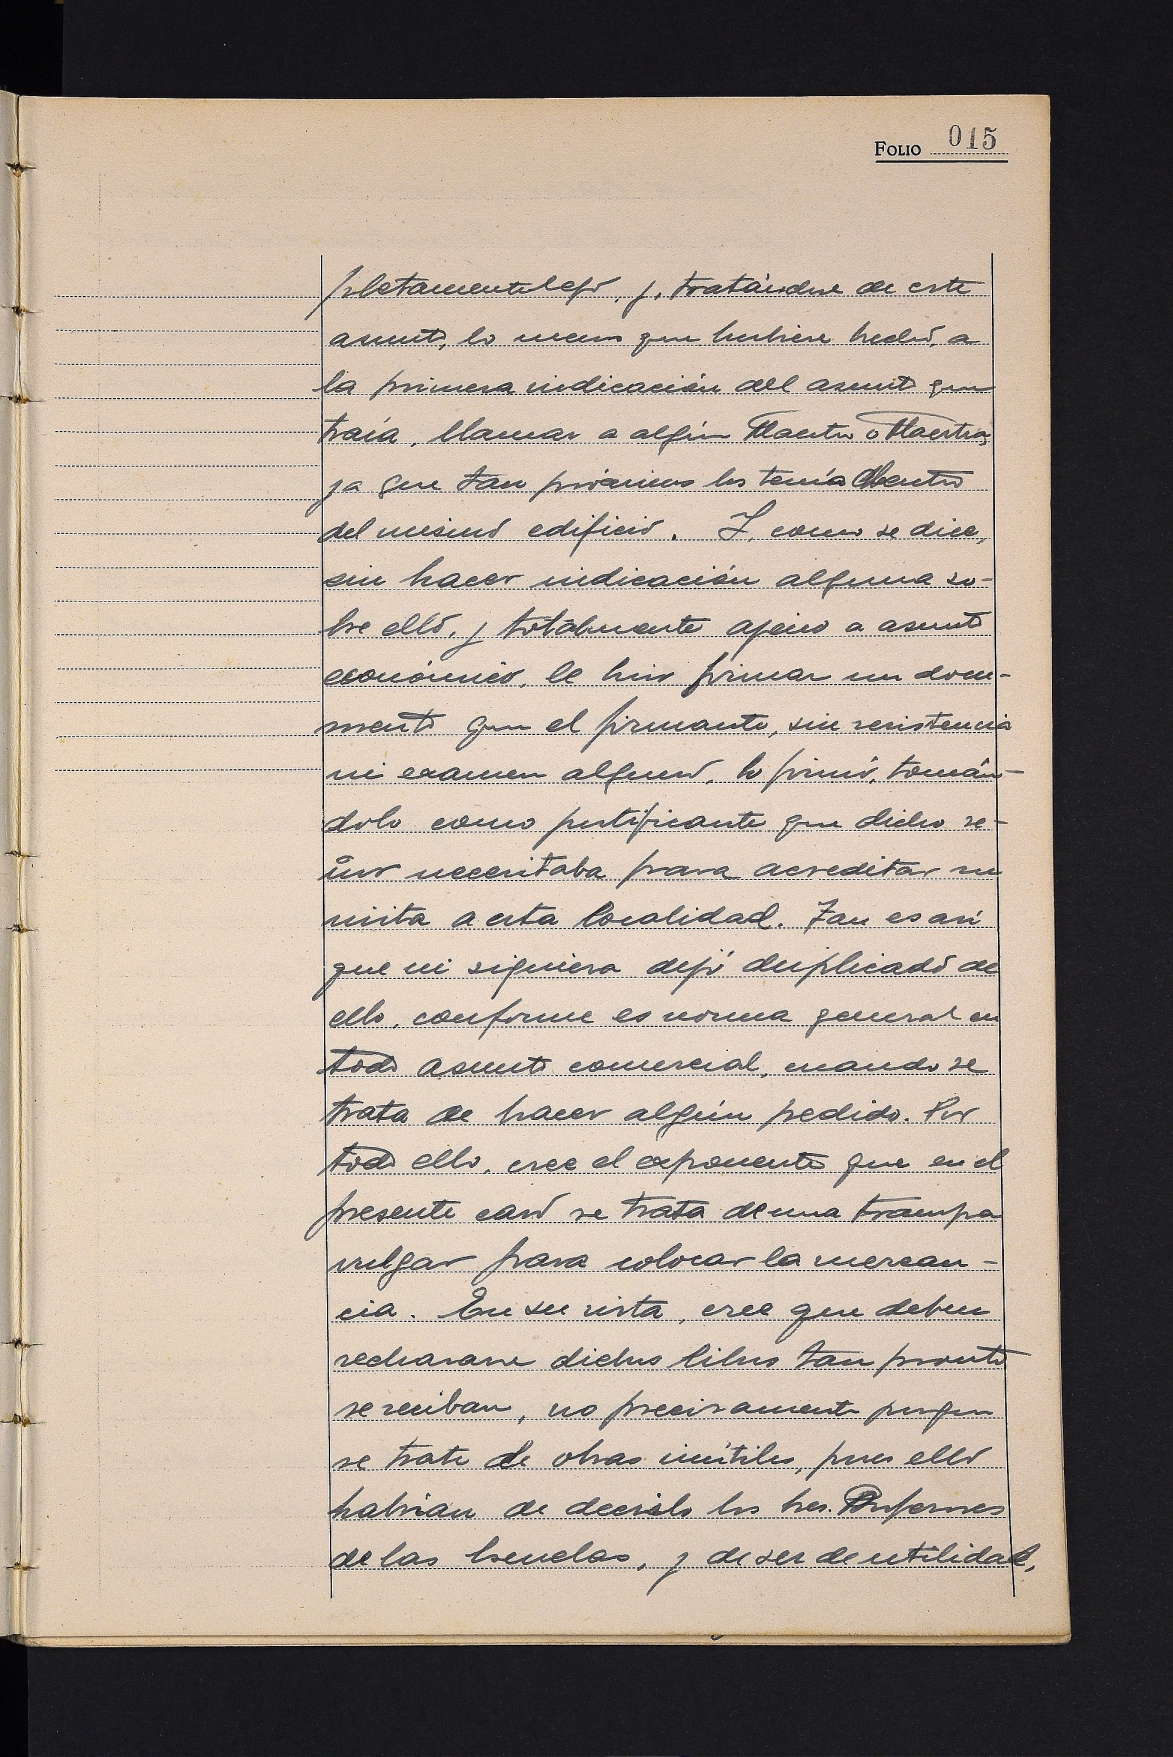 FOLIO 015
pletamente lejo, y, tratándose de este
asunto, lo menos que hubiese hecho, a
la primera indicación del asunto que
traía, llamar a algún Maestro o Maestra,
ya que tan próximos los tenía dentro
del mismo edificio. Y, como se dice,
sin hacer indicación alguna so-
bre ello, y totalmente ajeno a asunto
económico, le hizo firmar un docu-
mento que el firmante, sin resistencia
ni examen alguno, lo firmó, tomán-
dolo como justificante que dicho se-
ñor necesitaba para acreditar su
visita a esta localidad. Tan es así
que ni siquiera dejó duplicado de
ello, conforme es norma general en
todo asunto comercial, cuando se
trata de hacer algún pedido. Por
todo ello, cree el exponente que en el
presente caso se trata de una trampa
vulgar para colocar la mercan-
cia. En su vista, cree que deben
rechazarse dichos libros tan pronto
se reciban, no precisamente porque
se trate de obras inútiles, pues ello
habrían de decirlo los tres. Profesores
de las Escuelas, y de ser de utilidad,